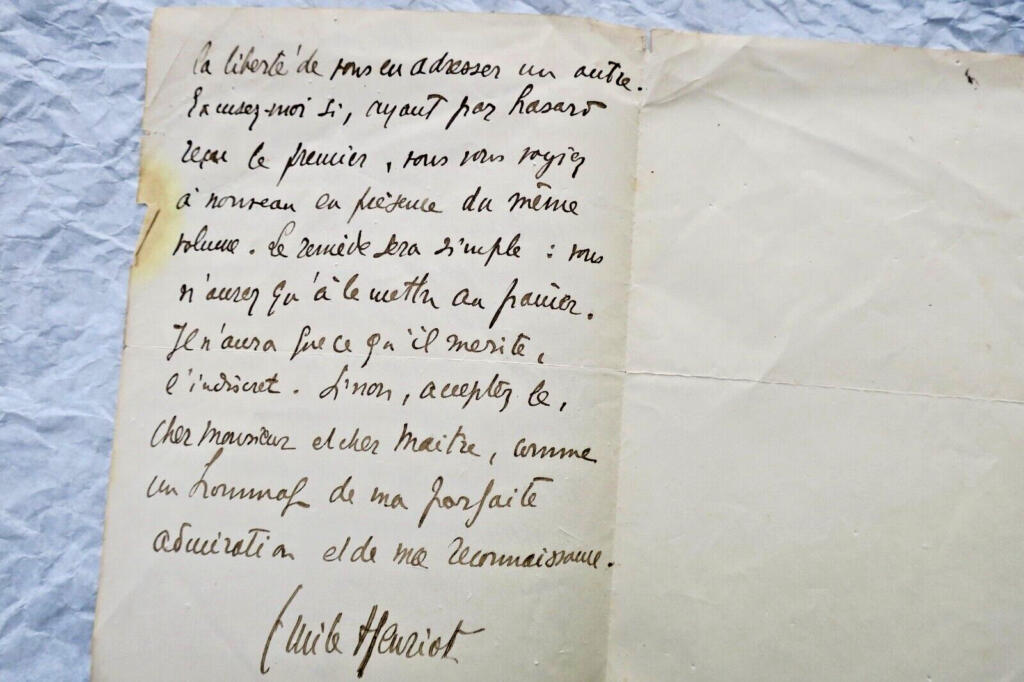 la liberté de vous en adresser un autre.
Excusez-moi si, ayant par hasard
reçu le premier, vous vous voyiez
à nouveau en présence du même
volume. Le remède sera simple : vous
n'aurez qu'à le mettre au panier.
Il n'aura que ce qu'il merite,
l'indiscret. Sinon, acceptez le,
cher Monsieur et cher Maitre, comme
un hommage de ma parfaite
admiration et de ma reconnaissance.
Emile Henriot